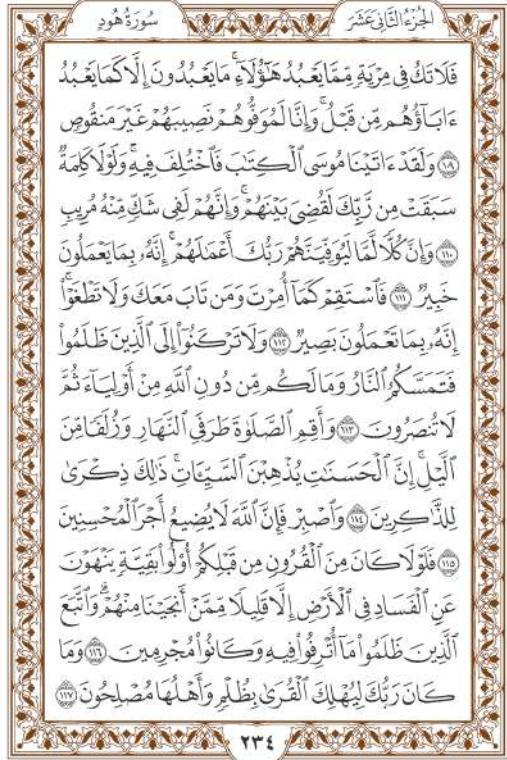 الجُزْءُ الثَّانِي عَشَرَ
سُورَةُ هُودٍ
فَلَا تَكُ فِى مِرْيَةٍ مِّمَّا يَعْبُدُ هَٰٓؤُلَآءِ ۚ مَا يَعْبُدُونَ إِلَّا كَمَا يَعْبُدُ
ءَابَآؤُهُم مِّن قَبْلُ ۚ وَإِنَّا لَمُوَفُّوهُمْ نَصِيبَهُمْ غَيْرَ مَنقُوصٍ
١٠٩ وَلَقَدْ ءَاتَيْنَا مُوسَى ٱلْكِتَٰبَ فَٱخْتُلِفَ فِيهِ ۚ وَلَوْلَا كَلِمَةٌ
سَبَقَتْ مِن رَّبِّكَ لَقُضِىَ بَيْنَهُمْ ۚ وَإِنَّهُمْ لَفِى شَكٍّ مِّنْهُ مُرِيبٍ
١١٠ وَإِنَّ كُلًّا لَّمَّا لَيُوَفِّيَنَّهُمْ رَبُّكَ أَعْمَٰلَهُمْ ۚ إِنَّهُۥ بِمَا يَعْمَلُونَ
خَبِيرٌ ١١١ فَٱسْتَقِمْ كَمَآ أُمِرْتَ وَمَن تَابَ مَعَكَ وَلَا تَطْغَوْا۟ ۚ
إِنَّهُۥ بِمَا تَعْمَلُونَ بَصِيرٌ ١١٢ وَلَا تَرْكَنُوٓا۟ إِلَى ٱلَّذِينَ ظَلَمُوا۟
فَتَمَسَّكُمُ ٱلنَّارُ وَمَا لَكُم مِّن دُونِ ٱللَّهِ مِنْ أَوْلِيَآءَ ثُمَّ
لَا تُنصَرُونَ ١١٣ وَأَقِمِ ٱلصَّلَوٰةَ طَرَفَىِ ٱلنَّهَارِ وَزُلَفًا مِّنَ
ٱلَّيْلِ ۚ إِنَّ ٱلْحَسَنَٰتِ يُذْهِبْنَ ٱلسَّيِّـَٔاتِ ۚ ذَٰلِكَ ذِكْرَىٰ
لِلذَّٰكِرِينَ ١١٤ وَٱصْبِرْ فَإِنَّ ٱللَّهَ لَا يُضِيعُ أَجْرَ ٱلْمُحْسِنِينَ
١١٥ فَلَوْلَا كَانَ مِنَ ٱلْقُرُونِ مِن قَبْلِكُمْ أُو۟لُوا۟ بَقِيَّةٍ يَنْهَوْنَ
عَنِ ٱلْفَسَادِ فِى ٱلْأَرْضِ إِلَّا قَلِيلًا مِّمَّنْ أَنجَيْنَا مِنْهُمْ ۗ وَٱتَّبَعَ
ٱلَّذِينَ ظَلَمُوا۟ مَآ أُتْرِفُوا۟ فِيهِ وَكَانُوا۟ مُجْرِمِينَ ١١٦ وَمَا
كَانَ رَبُّكَ لِيُهْلِكَ ٱلْقُرَىٰ بِظُلْمٍ وَأَهْلُهَا مُصْلِحُونَ ١١٧
٢٣٤